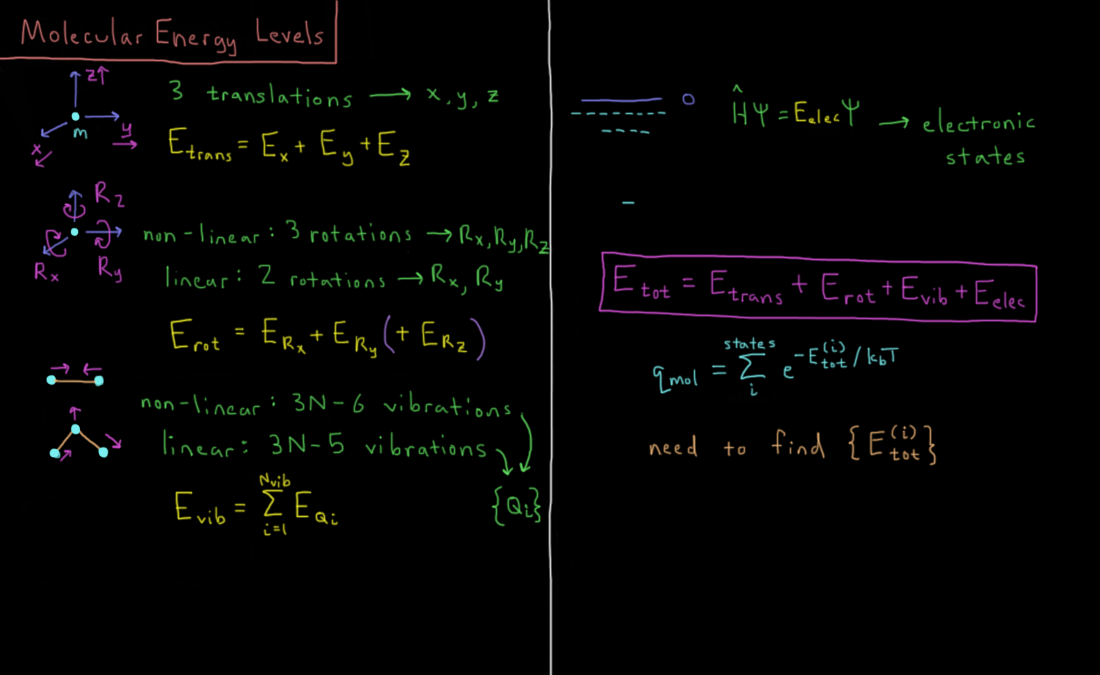 Molecular Energy Levels
z↑
m
y
x
3 translations → x, y, z
E_trans = E_x + E_y + E_z
R_z
R_x
R_y
non-linear: 3 rotations → R_x, R_y, R_z
linear: 2 rotations → R_x, R_y
E_rot = E_{R_x} + E_{R_y} (+ E_{R_z})
non-linear: 3N-6 vibrations
linear: 3N-5 vibrations
E_vib = Σ_{i=1}^{N_vib} E_{Q_i}
{Q_i}
0
ĤΨ = E_elec Ψ → electronic
states
E_tot = E_trans + E_rot + E_vib + E_elec
q_mol = Σ_i^{states} e^{-E_tot^{(i)}/k_bT}
need to find {E_tot^{(i)}}